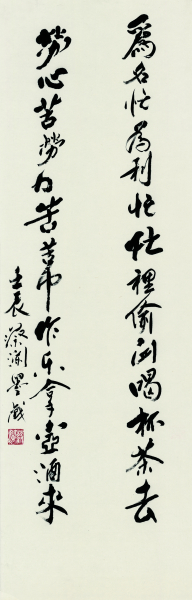 爲名忙爲利忙忙裡偷閒喝杯茶去
勞心苦勞力苦苦中作乐拿壺酒來
壬辰蔡澜墨戲